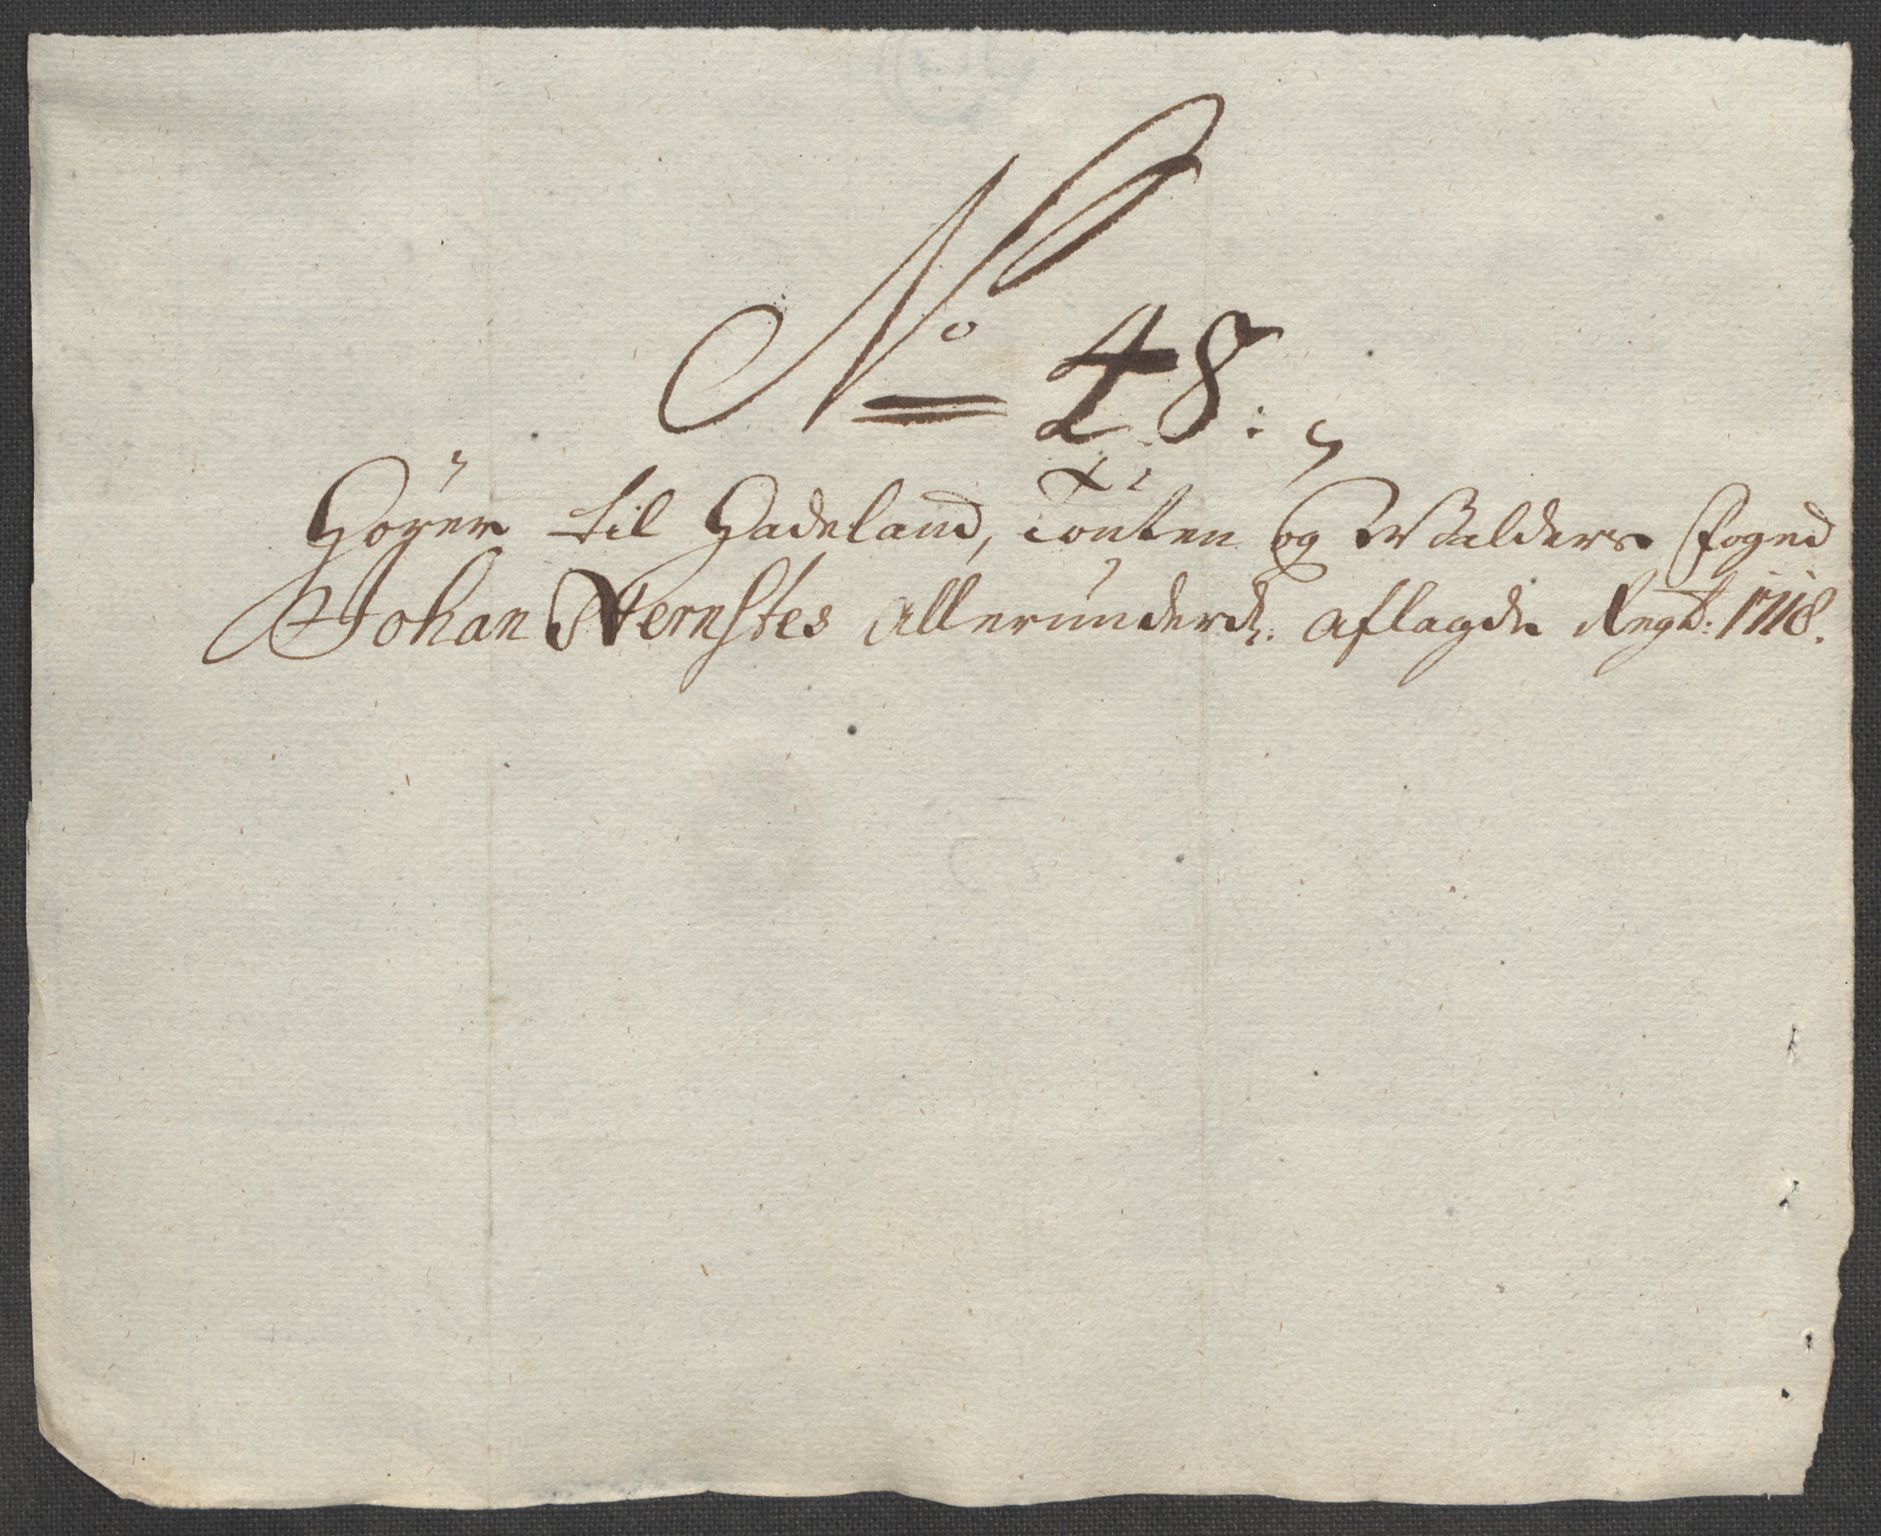 No 48:
Hører til Hadeland, Toten og Walders Foged
Johan Wernstes Allerunderd: aflagde Regsk: 1718.